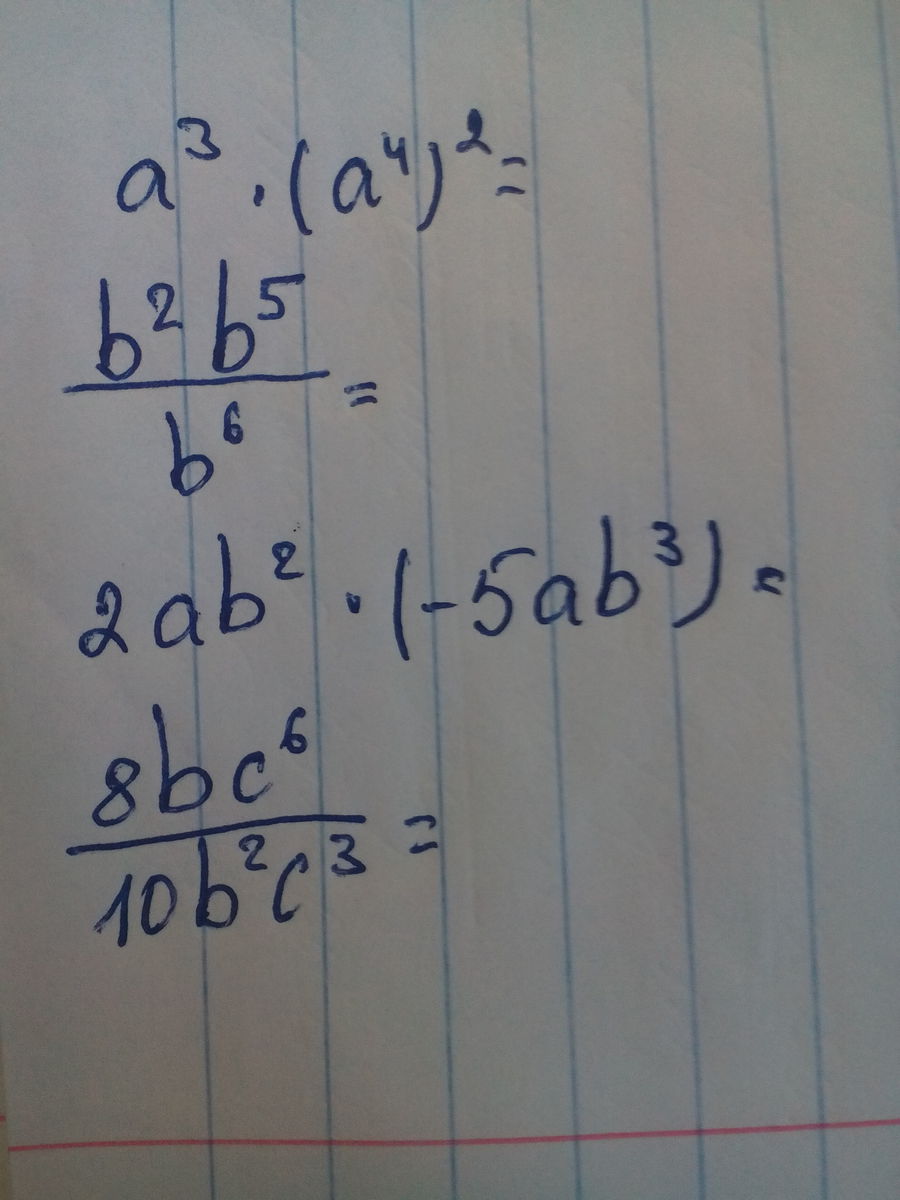 a³ · (a⁴)² =
b² b⁵
/ b⁶ =
2ab² · (-5ab³) =
8bc⁶
/ 10b²c³ =